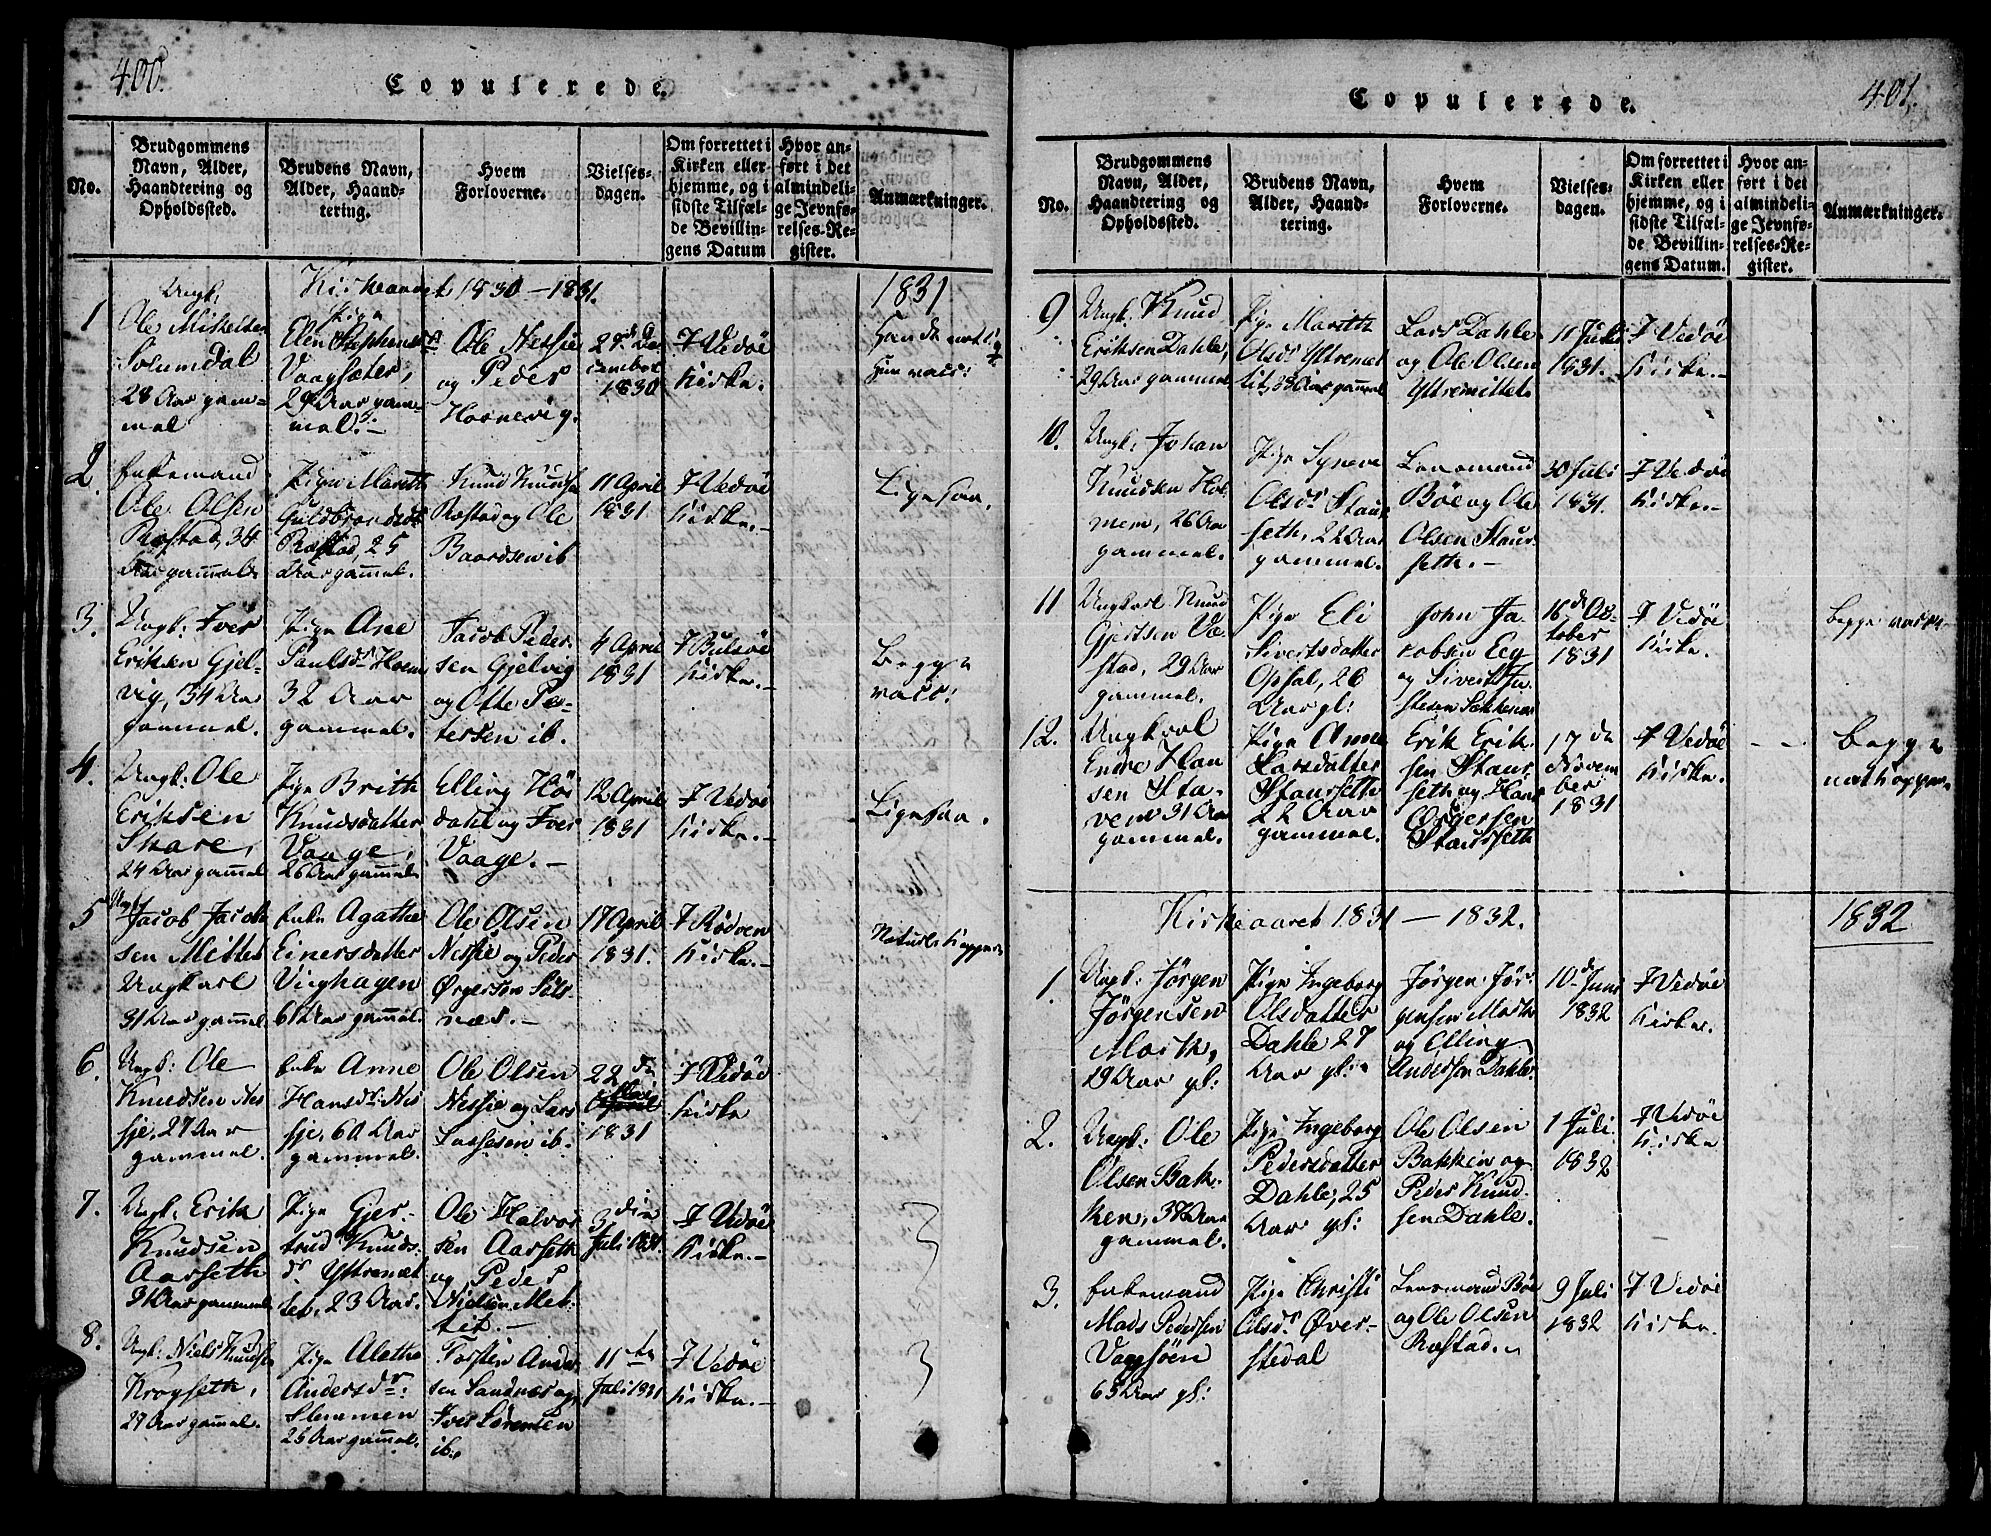 400.
Copulerede.
No.
Brudgommens
Navn, Alder,
Haandtering og
Opholdssted.
Brudens Navn,
Alder, Haand-
tering.
Hvem
Forloverne.
Vielses-
dagen.
Om forrettet i
Kirken eller
hjemme, og i
sidste Tilfæl-
de Bevillin-
gens Datum
Hvor an-
ført i det
almindeli-
ge Jevnfø-
relses-Re-
gister.
Anmærkninger.
Kirkeaaret 1830 – 1831.
1831
1
Ungk:
Ole
Solemdal
28 Aar gam=
mel
Pige
Elen Stephensdr
Vaagsæter,
29 Aar gam=
mel. –
Ole Nessie
og Peder
Hornevig.
27de De
cember
1830
I Vedøe
Kirke.
2.
Enkemand
Ole Olsen
Røstad, 34
Aar gammel
Pige Marith
Guldbrandsdr
Røstad, 25
Aar gammel.
Knud Knudsen
Røstad og Ole
Baardsen ib
11 April
1831
I Vedøe
Kirke. –
Ligesaa.
3.
Ungk: Iver
Eriksen Gjel-
vig, 34 Aar
gammel.
Pige Ane
Paulsdr Hoem
32 Aar
gammel.
Jacob Peder-
sen Gjelvig
og Otte Pe-
tersen ib.
4 April
1831
I Bolsøe
Kirke. –
Begge
vacc:
4.
Ungk: Ole
Eriksen
Skare,
24 Aar gammel
Pige Brith
Knudsdatter
Vaage,
26 Aar gammel
Elling Høi
dahl og Iver
Vaage. –
12 April
1831
I Vedøe
Kirke. –
Ligesaa.
5
Ungk:
Jacob Jacob
sen Mittet
Ungkarl
31 Aar gammel
Enke Agathe
Einersdatter
Vieghagen
61 Aar gammel.
Ole Olsen
Nessie og Peder
Ørgersen Sols-
næs. –
17 April
1831.
I Rødven
Kirke. –
Naturl. Kopper
6.
Ungk: Ole
Knudsen Nes
sje, 27 Aar
gammel.
Enke Anne
Hansdr: Nes
sje, 60 Aar
gammel.
Ole Olsen
Nessie og Lars
Lassesen ib.
22de
1831
I Vedøe
Kirke
7.
Ungk: Erik
Knudsen
Aarseth
31 Aar gammel
Pige Gjer-
trud Knuds
dr Yttremit
tet, 23 Aar.
Ole Halvor
sen Aarseth
og Peder
Nielsen Met
tit. –
3die
Juli 1831.
I Vedøe
Kirke. –
8.
Ungk: Niels Knudsen
Kroyseth,
27 Aar gammel.
Pige Alethe
Andersdr:
Slemmen
25 Aar gammel.
Torsten Ander
sen Sandnæs og
Iver Sørensen
ib.
11te
Juli 1831
I Vedøe
Kirke. –
401.
Copulerede.
No.
Brudgommens
Navn, Alder,
Haandtering og
Opholdssted.
Brudens Navn,
Alder, Haand-
tering.
Hvem
Forloverne.
Vielses-
dagen.
Om forrettet i
Kirken eller
hjemme, og i
sidste Tilfæl-
de Bevillin-
gens Datum.
Hvor an-
ført i det
almindeli-
ge Jevnfø-
relses-Re-
gister.
Anmærkninger.
9
Ungk: Knud
Eriksen Dahle,
29 Aar gammel
Pige Marith
Olsdr Yttremet
tit, 28 Aar gammel
Lars Dahle
og Ole Olsen
Yttremittet
11 Juli
1831.
I Vedøe
Kirke. –
10.
Ungk: Johan
Knudsen Hol
mem, 26 Aar
gammel.
Pige Syneve
Olsdr Staur
seth, 22 Aar
gammel.
Lensmand
Böe og Ole
Olsen Staur
seth. –
30 Juli
1831.
I Vedøe
Kirke. –
11
Ungkarl Knud
Gjertsen Væ
stad, 29 Aar
gammel.
Pige Eli
Sivertsdatter
Opsal, 26
Aar gl:
John Ja
cobsen Eeg
og Sivert
16de Oc-
tober
1831
I Vedøe
Kirke.
12.
Ungkarl
Endre Han
sen Sta-
vem 31 Aar
gammel.
Pige Anne
Larsdatter
Staurseth
22 Aar
gammel.
Erik Erik
sen Staur
seth og Hans
Ørgersen
Staurseth
17de
Novem
ber
1831
I Vedøe
Kirke.
Begge
Kirkeaaret 1831 – 1832.
1832
1.
Ungk: Jørgen
Jørgensen
Mork,
29 Aar gl:
Pige Ingeborg
Olsdatter
Dahle 27
Aar gl:
Jørgen Jør-
gensen Mork
og Elling
Andersen Dahle.
10de Juni
1832
I Vedøe
Kirke.
2.
Ungk: Ole
Olsen Bak-
ken, Aar
gammel.
Pige Ingeborg
Pedersdatter
Dahle, 25
Aar gl:
Ole Olsen
Bakken og
Peder Knud
sen Dahle.
1 Juli
1832
I Vedøe
Kirke
3.
Enkemand
Mads Pedersen
Vaagsöen
65 Aar gl:
Pige Christi
Olsdr Över-
stedal
Lensmand Böe
og Ole Olsen
Røstad. –
9 Juli
1832
I Vedøe
Kirke.